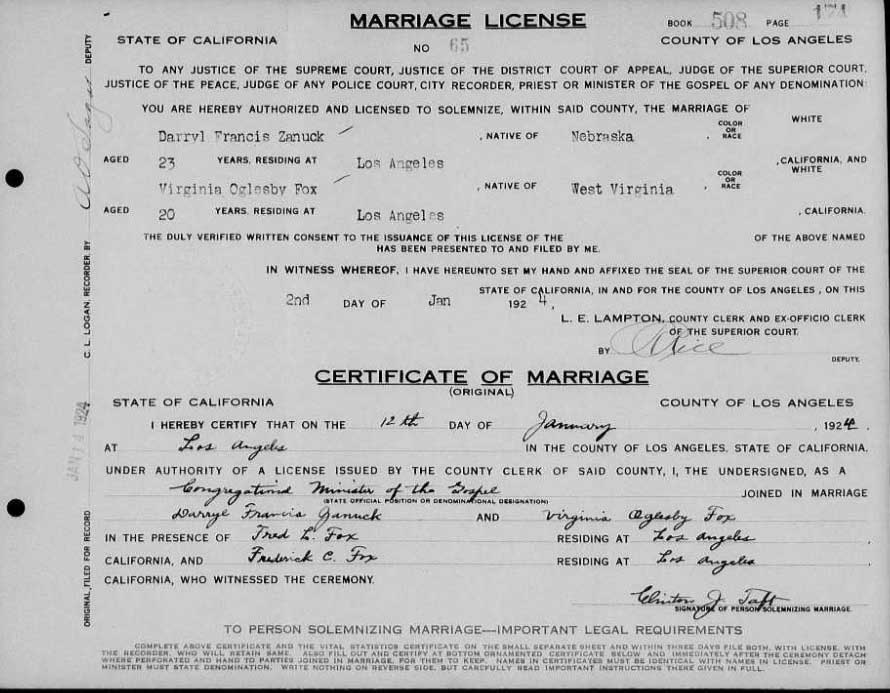 MARRIAGE LICENSE
BOOK 508 PAGE
STATE OF CALIFORNIA NO 65 COUNTY OF LOS ANGELES
TO ANY JUSTICE OF THE SUPREME COURT, JUSTICE OF THE DISTRICT COURT OF APPEAL, JUDGE OF THE SUPERIOR COURT,
JUSTICE OF THE PEACE, JUDGE OF ANY POLICE COURT, CITY RECORDER, PRIEST OR MINISTER OF THE GOSPEL OF ANY DENOMINATION:
YOU ARE HEREBY AUTHORIZED AND LICENSED TO SOLEMNIZE, WITHIN SAID COUNTY, THE MARRIAGE OF
Darryl Francis Zanuck , NATIVE OF Nebraska , COLOR OR RACE WHITE
AGED 23 YEARS, RESIDING AT Los Angeles , CALIFORNIA, AND
Virginia Oglesby Fox , NATIVE OF West Virginia , COLOR OR RACE WHITE
AGED 20 YEARS, RESIDING AT Los Angeles , CALIFORNIA.
THE DULY VERIFIED WRITTEN CONSENT TO THE ISSUANCE OF THIS LICENSE OF THE OF THE ABOVE NAMED
HAS BEEN PRESENTED TO AND FILED BY ME.
IN WITNESS WHEREOF, I HAVE HEREUNTO SET MY HAND AND AFFIXED THE SEAL OF THE SUPERIOR COURT OF THE
STATE OF CALIFORNIA, IN AND FOR THE COUNTY OF LOS ANGELES, ON THIS
2nd DAY OF Jan 192 4.
L. E. LAMPTON, COUNTY CLERK AND EX-OFFICIO CLERK
OF THE SUPERIOR COURT.
BY
DEPUTY.
CERTIFICATE OF MARRIAGE
(ORIGINAL)
STATE OF CALIFORNIA COUNTY OF LOS ANGELES
I HEREBY CERTIFY THAT ON THE 12th DAY OF January , 1924.
AT Los Angeles IN THE COUNTY OF LOS ANGELES, STATE OF CALIFORNIA,
UNDER AUTHORITY OF A LICENSE ISSUED BY THE COUNTY CLERK OF SAID COUNTY, I, THE UNDERSIGNED, AS A
Congregational Minister of the Gospel JOINED IN MARRIAGE
(STATE OFFICIAL POSITION OR DENOMINATIONAL DESIGNATION)
Darryl Francis Zanuck AND Virginia Oglesby Fox
IN THE PRESENCE OF Fred L. Fox RESIDING AT Los Angeles
CALIFORNIA, AND Frederick C. Fox RESIDING AT Los Angeles
CALIFORNIA, WHO WITNESSED THE CEREMONY.
Clinton J. Taft
SIGNATURE OF PERSON SOLEMNIZING MARRIAGE.
TO PERSON SOLEMNIZING MARRIAGE—IMPORTANT LEGAL REQUIREMENTS
COMPLETE ABOVE CERTIFICATE AND THE VITAL STATISTICS CERTIFICATE ON THE SMALL SEPARATE SHEET AND WITHIN THREE DAYS FILE BOTH, WITH LICENSE, WITH
THE RECORDER, WHO WILL RETAIN SAME. ALSO FILL OUT AND CERTIFY AT BOTTOM ORNAMENTED CERTIFICATE BELOW AND IMMEDIATELY AFTER THE CEREMONY DETACH
WHERE PERFORATED AND HAND TO PARTIES JOINED IN MARRIAGE, FOR THEM TO KEEP. NAMES IN CERTIFICATES MUST BE IDENTICAL WITH NAMES IN LICENSE. PRIEST OR
MINISTER MUST STATE DENOMINATION. WRITE NOTHING ON REVERSE SIDE, BUT CAREFULLY READ IMPORTANT INSTRUCTIONS THERE GIVEN IN FULL.
ORIGINAL, FILED FOR RECORD JAN 14 1924 C. L. LOGAN, RECORDER, BY DEPUTY